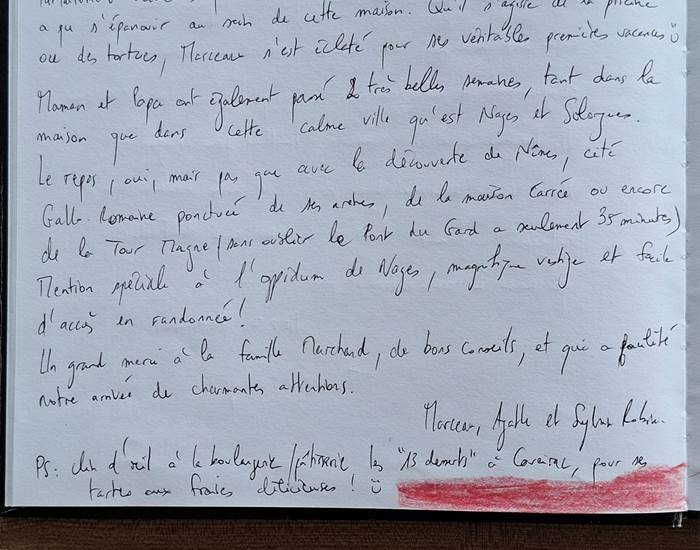 a pu s'épanouir au sein de cette maison. Qu'il s'agisse de la piscine
ou des tortues, Marceau s'est éclaté pour ses véritables premières vacances
Maman et Papa ont également passé 2 très belles semaines, tant dans la
maison que dans cette calme ville qu'est Nages et Solorgues.
Le repos, oui, mais pas que avec la découverte de Nîmes, cité
Gallo-Romaine ponctuée de ses arènes, de la maison Carrée ou encore
de la Tour Magne (sans oublier le Pont du Gard a seulement 35 minutes)
Mention spéciale à l'oppidum de Nages, magnifique vestige et facile
d'accès en randonnée!
Un grand merci à la famille Marchand, de bons conseils, et qui a facilité
notre arrivée de charmantes attentions.
Marceau, Agathe et Sylvain
PS: clin d'œil à la boulangerie/pâtisserie les "13 desserts" à Caveirac, pour ses
tartes aux fraises délicieuses!